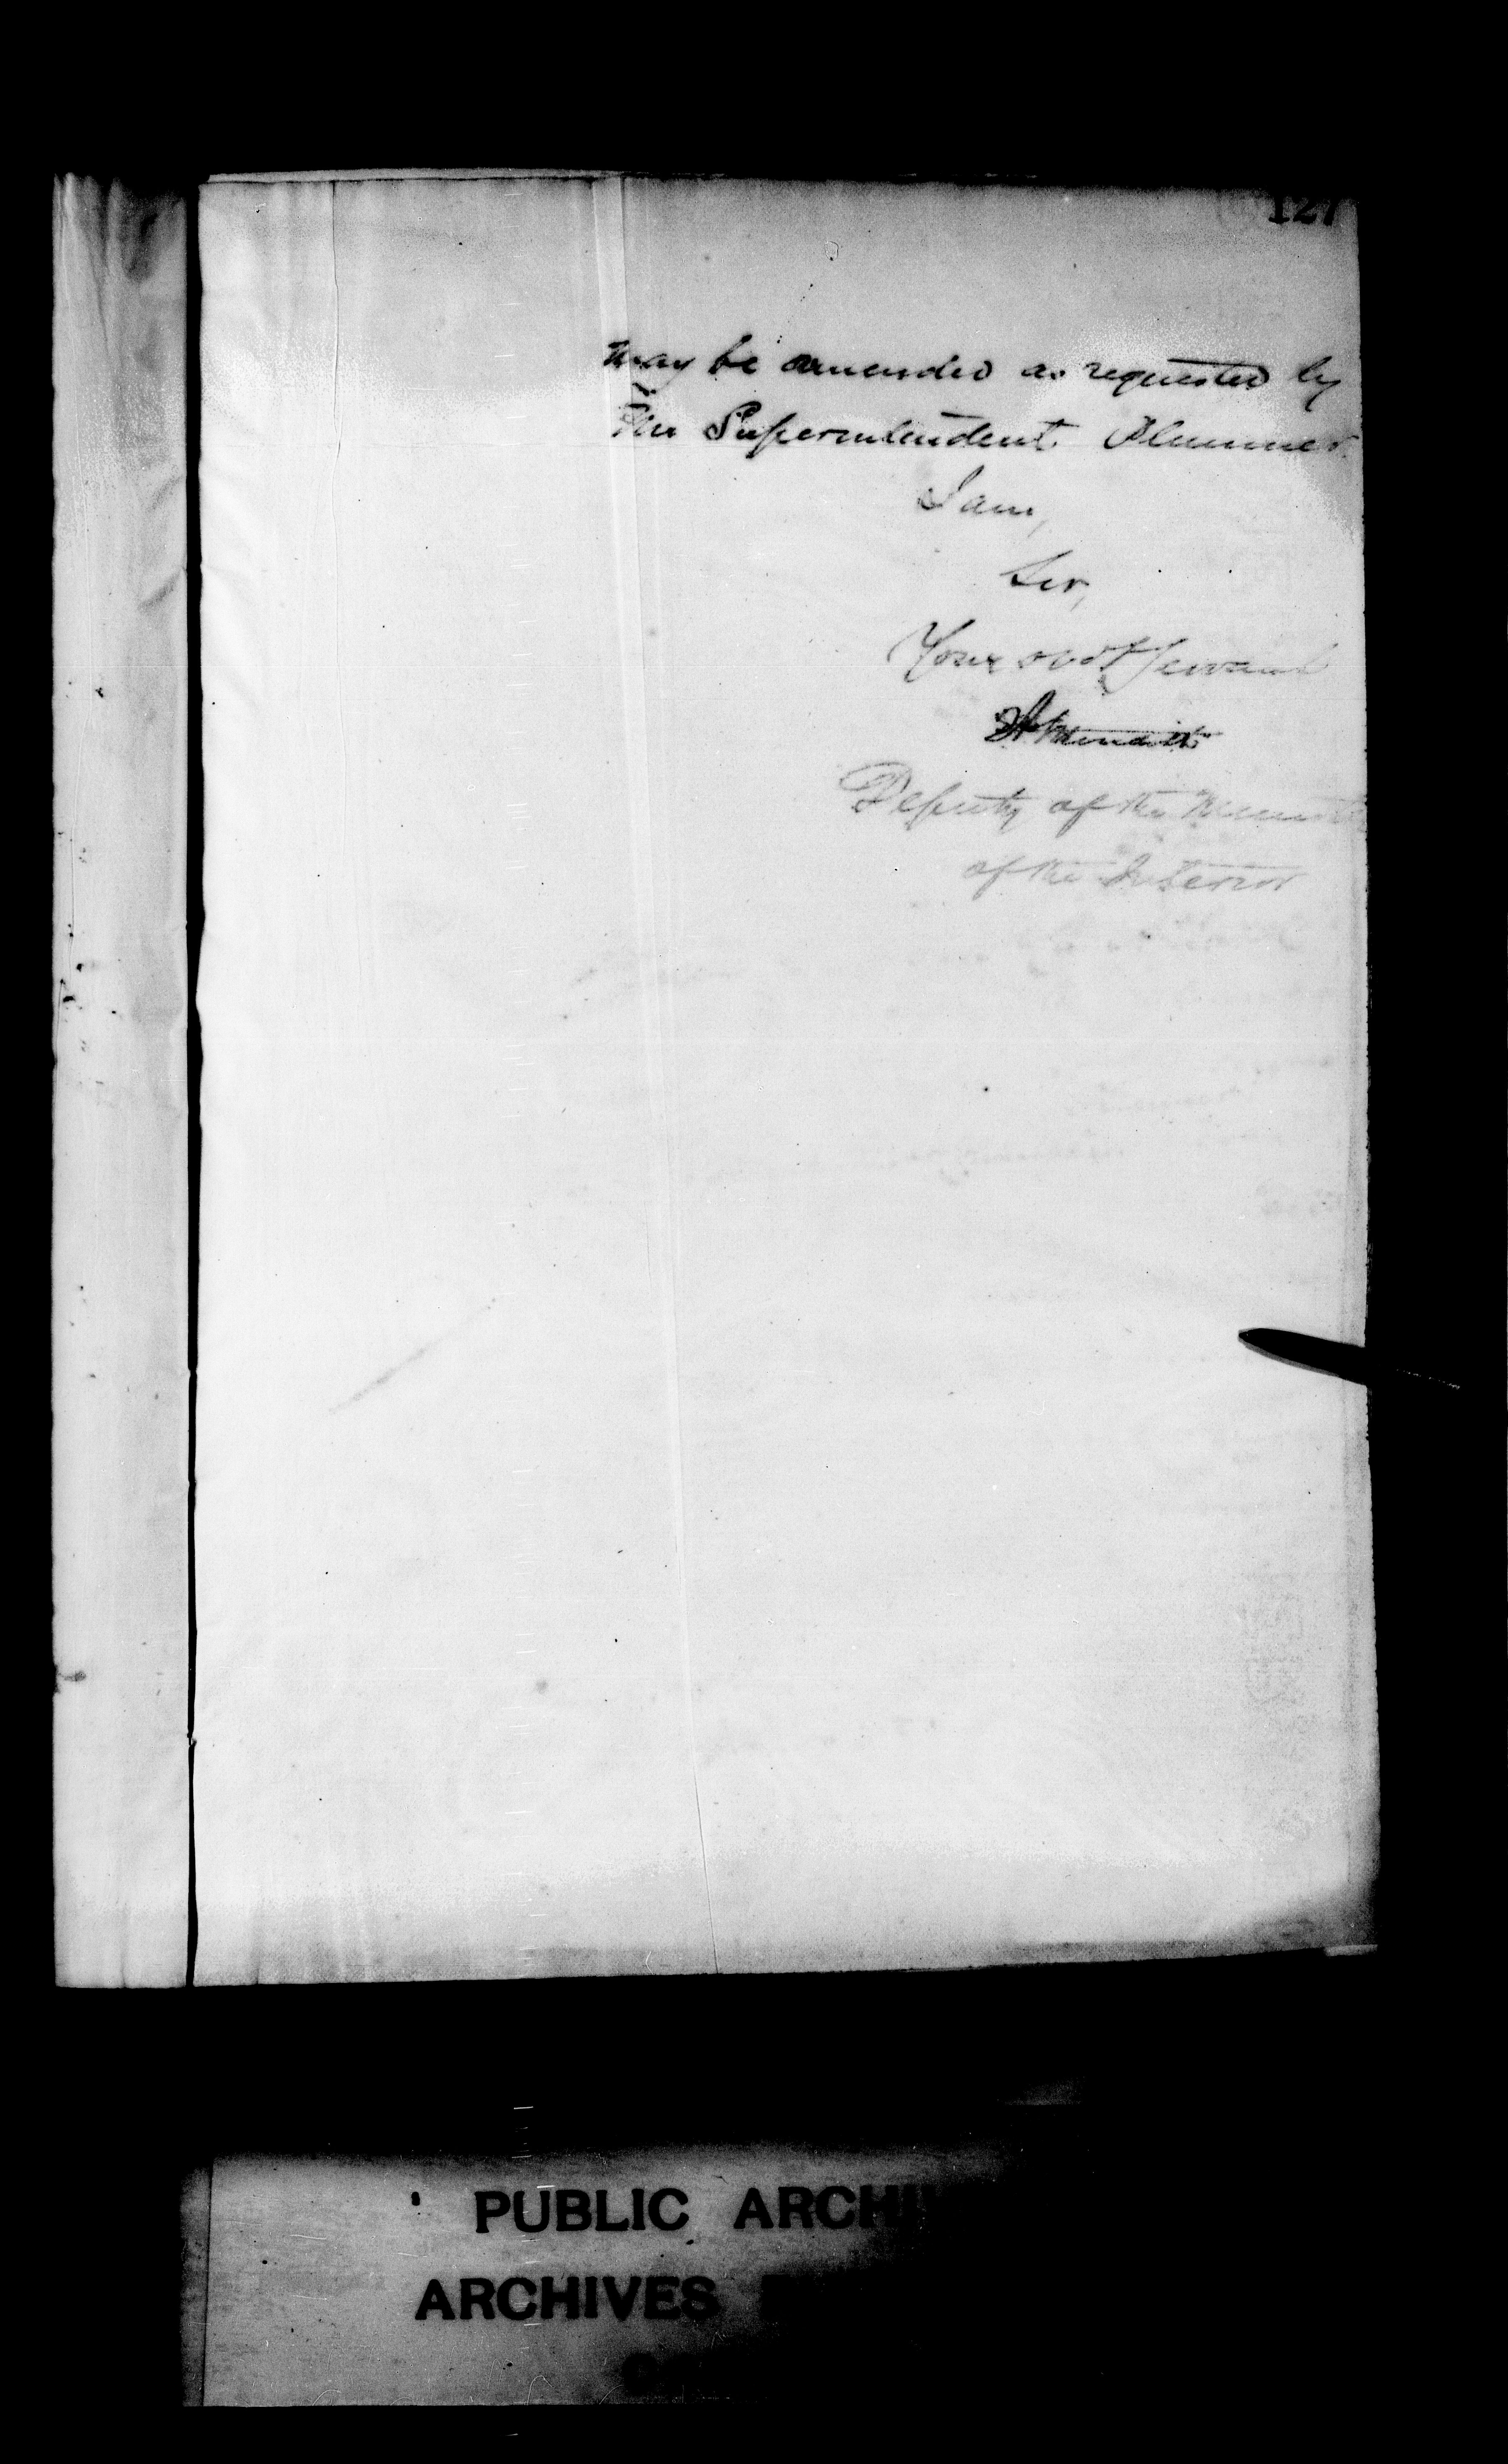 127
may be amended as requested by
the Superintendent Plummer.
I am,
Sir,
Your obdt Servant
Deputy of the Minister
of the Interior
PUBLIC ARCHIV
ARCHIVES